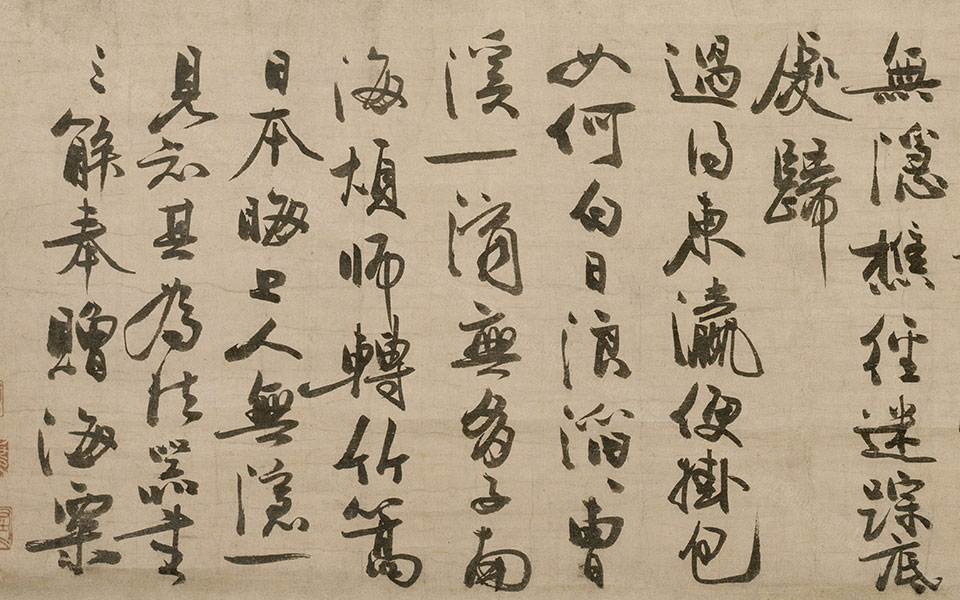 無隱樵徑迷踪底
處歸
過得東瀛便掛包
如何白日浪滔〻曹
溪一滴無多子南
海煩師轉竹篙
日本晦上人無隱一
見知其為法器書
三解奉贈海粟